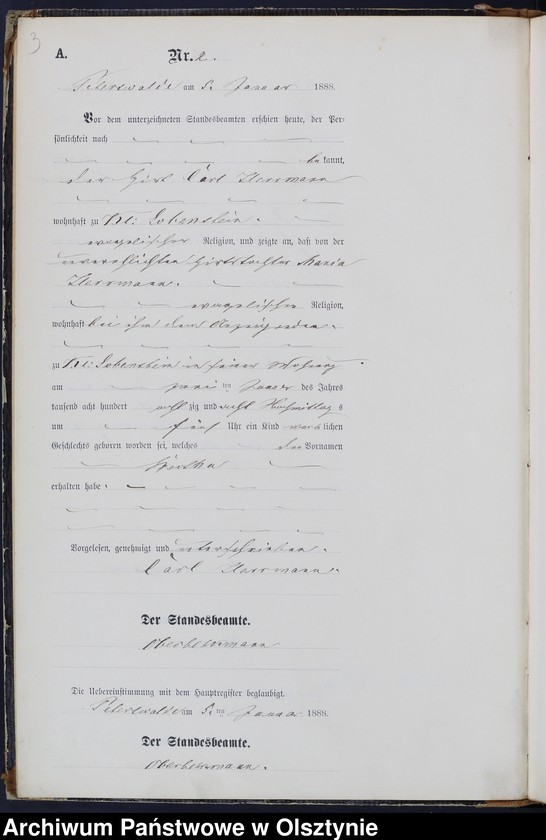 3
A. Nr. 2.
Peterswalde am 5. Januar 1888.
Vor dem unterzeichneten Standesbeamten erschien heute, der Per-
sönlichkeit nach
bekannt,
der Hirt Carl Herrmann
wohnhaft zu Kl: Lobenstein
evangelischer Religion, und zeigte an, daß von der
unverehlichten Hirtstochter Maria
Herrmann
evangelischer Religion,
wohnhaft bei ihm dem Anzeigenden
zu Kl: Lobenstein in seiner Wohnung
am zwei ten Januar des Jahres
tausend acht hundert acht zig und acht Nachmittags
um fünf Uhr ein Kind weiblichen
Geschlechts geboren worden sei, welches den Vornamen
erhalten habe
Vorgelesen, genehmigt und unterschrieben
Carl Herrmann
Der Standesbeamte.
Die Uebereinstimmung mit dem Hauptregister beglaubigt.
Peterswalde am 5. ten Januar 1888.
Der Standesbeamte.
Archiwum Państwowe w Olsztynie